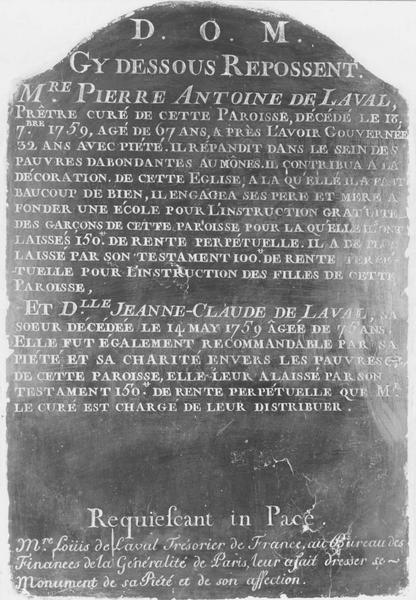 D. O. M.
GY DESSOUS REPOSSENT.
M.RE PIERRE ANTOINE DE LAVAL,
PRÊTRE CURÉ DE CETTE PAROISSE, DÉCÉDÉ LE 18,
7.BRE 1759, AGÉ DE 67 ANS, APRÈS L'AVOIR GOUVERNÉE
32 ANS AVEC PIETÉ. IL RÉPANDIT DANS LE SEIN DES
PAUVRES DABONDANTES AUMÔNES. IL CONTRIBUA A LA
DÉCORATION. DE CETTE EGLISE, A LA QU'ELLE IL A FAIT
BAUCOUP DE BIEN, IL ENGAGEA SES PERE ET MERE A
FONDER UNE ECOLE POUR L'INSTRUCTION GRATUITE
DES GARÇONS DE CETTE PAROISSE POUR LA QU'ELLE ILS ONT
LAISSES 150.tt DE RENTE PERPÉTUELLE. IL A DE PLUS
LAISSÉ PAR SON TESTAMENT 100.tt DE RENTE PERPÉ-
TUELLE POUR L'INSTRUCTION DES FILLES DE CETTE
PAROISSE,
ET D.LLE JEANNE-CLAUDE DE LAVAL, SA
SOEUR DÉCEDÉE LE 14 MAY 1759 ÂGÉE DE 75 ANS.
ELLE FUT EGALEMENT RECOMMANDABLE PAR SA
PIÉTÉ ET SA CHARITÉ ENVERS LES PAUVRES
DE CETTE PAROISSE, ELLE LEUR A LAISSÉ PAR SON
TESTAMENT 150.tt DE RENTE PERPÉTUELLE QUE M.R
LE CURÉ EST CHARGÉ DE LEUR DISTRIBUER.
Requiescant in Pace.
M.re Loüis de Laval Trésorier de France, au Bureau des
Finances de la Généralité de Paris, leur a fait dresser se
Monument de sa Piété et de son affection.